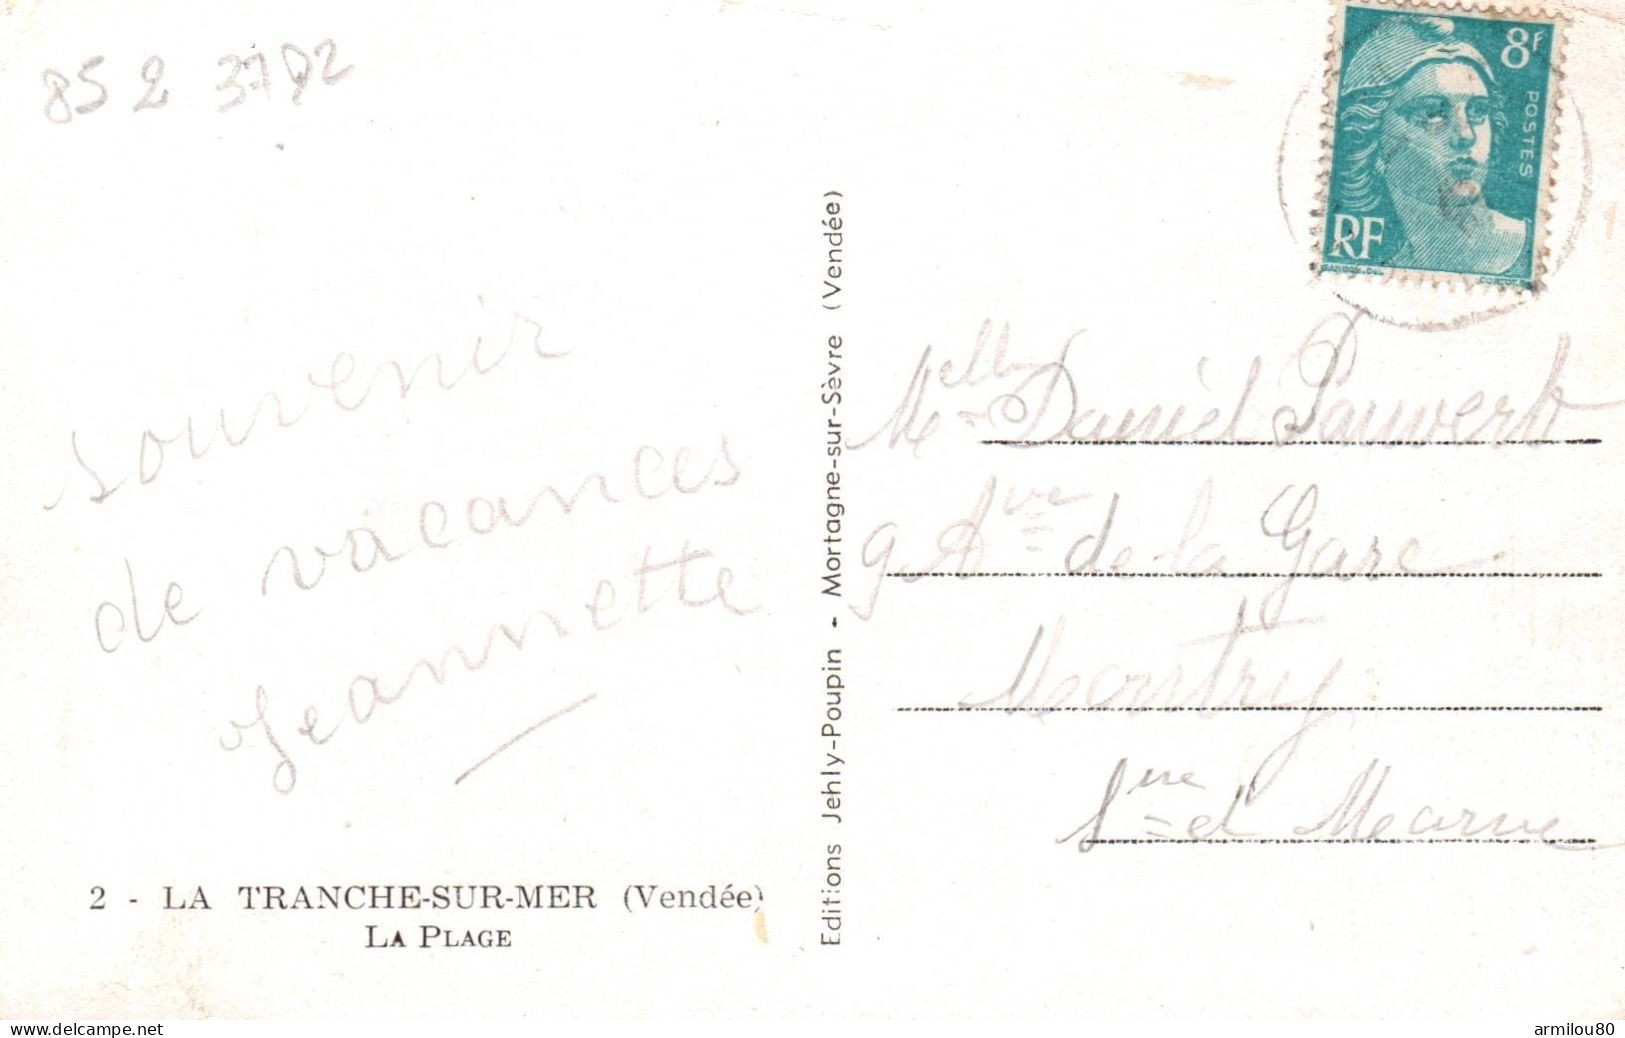 85 2 3782
8F
POSTES
RF
souvenir
de vacances
Jeannette
Melle Daniel Pauvert
9 Ave de la Gare
Montry
Sne et Marne
2 - LA TRANCHE-SUR-MER (Vendée)
LA PLAGE
Editions Jehly-Poupin - Mortagne-sur-Sèvre (Vendée)
https://www.delcampe.net
armilou80